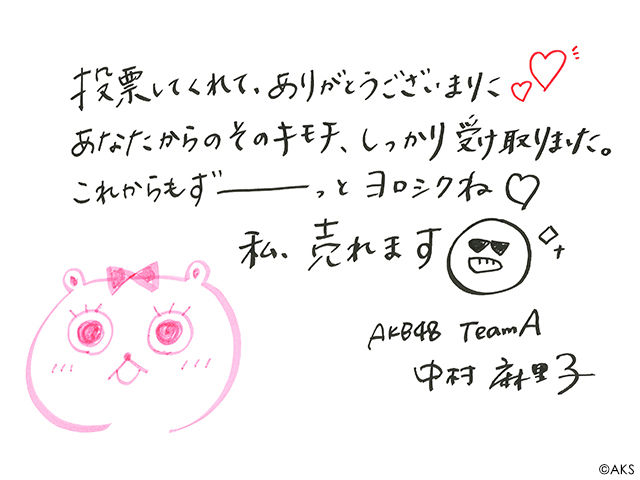 投票してくれて、ありがとうございました♡♡
あなたからのそのキモチ、しっかり受け取りました。
これからもずーーっと ヨロシクね♡
私、売れます
AKB48 TeamA
中村 麻里子
©AKS